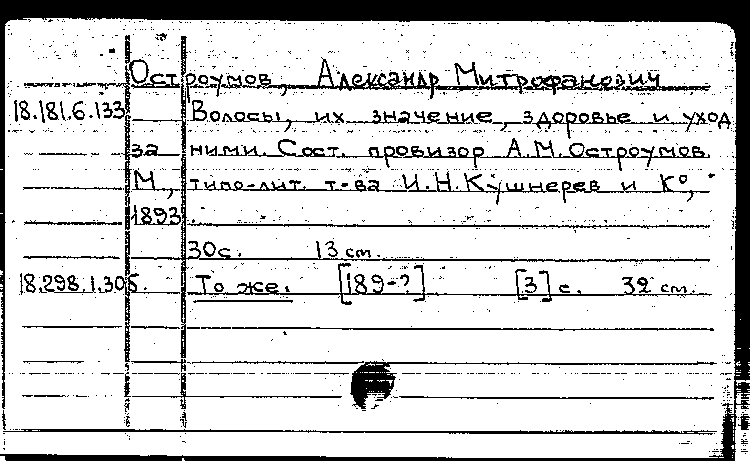 Остроумов, Александр Митрофанович
18.181.6.133 Волосы, их значение, здоровье и уход
за ними. Сост. провизор А.М. Остроумов.
М., типо-лит. т-ва И.Н. Кушнерев и К°,
1893.
30 с. 13 см.
18.298.1.305. То же. [189-?] [3] с. 32 см.